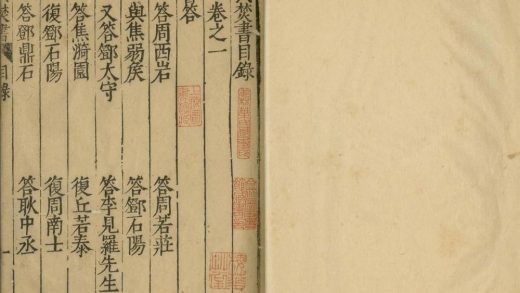 焚書目錄
卷之一
答
答周西岩 答周若莊
與焦弱侯 答鄧石陽
又答鄧太守 答李見羅先生
答焦漪園 復丘若泰
復鄧石陽 復周南士
答鄧鼎石 答耿中丞
焚書 目錄 一